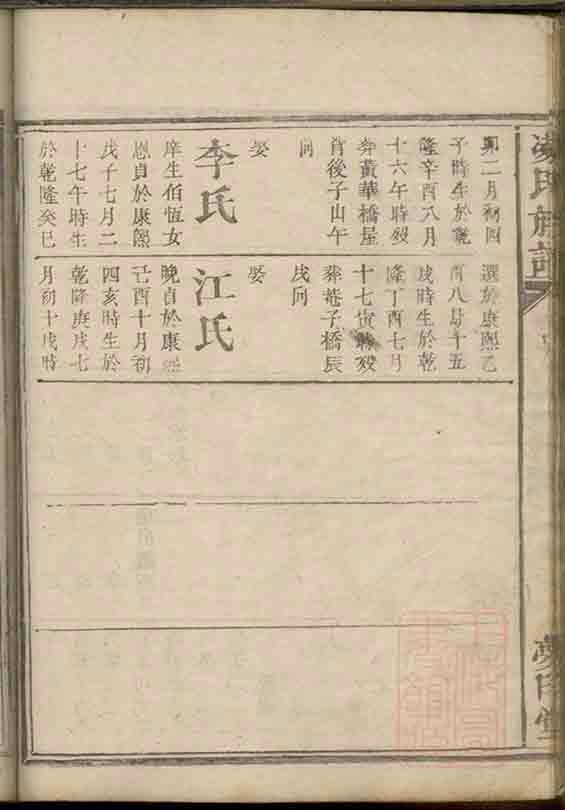 卯二月初四
子時生於乾
隆辛酉八月
十六午時殁
葬黃華橋屋
背後子山午
向
娶
李氏
庠生伯恆女
恩貞於康熙
戊子七月二
十七午時生
於乾隆癸巳
選於康熙乙
酉八月十五
戌時生於乾
隆丁酉七月
十七寅時殁
葬巷子橋辰
戌向
娶
江氏
晚貞於康熙
己酉十月初
四亥時生於
乾隆庚戌七
月初十戌時
氏族譜
堂